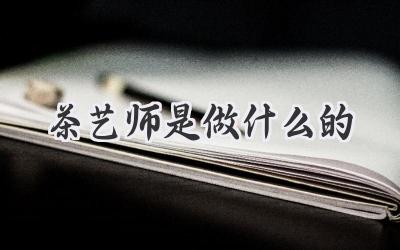 茶艺师是做什么的